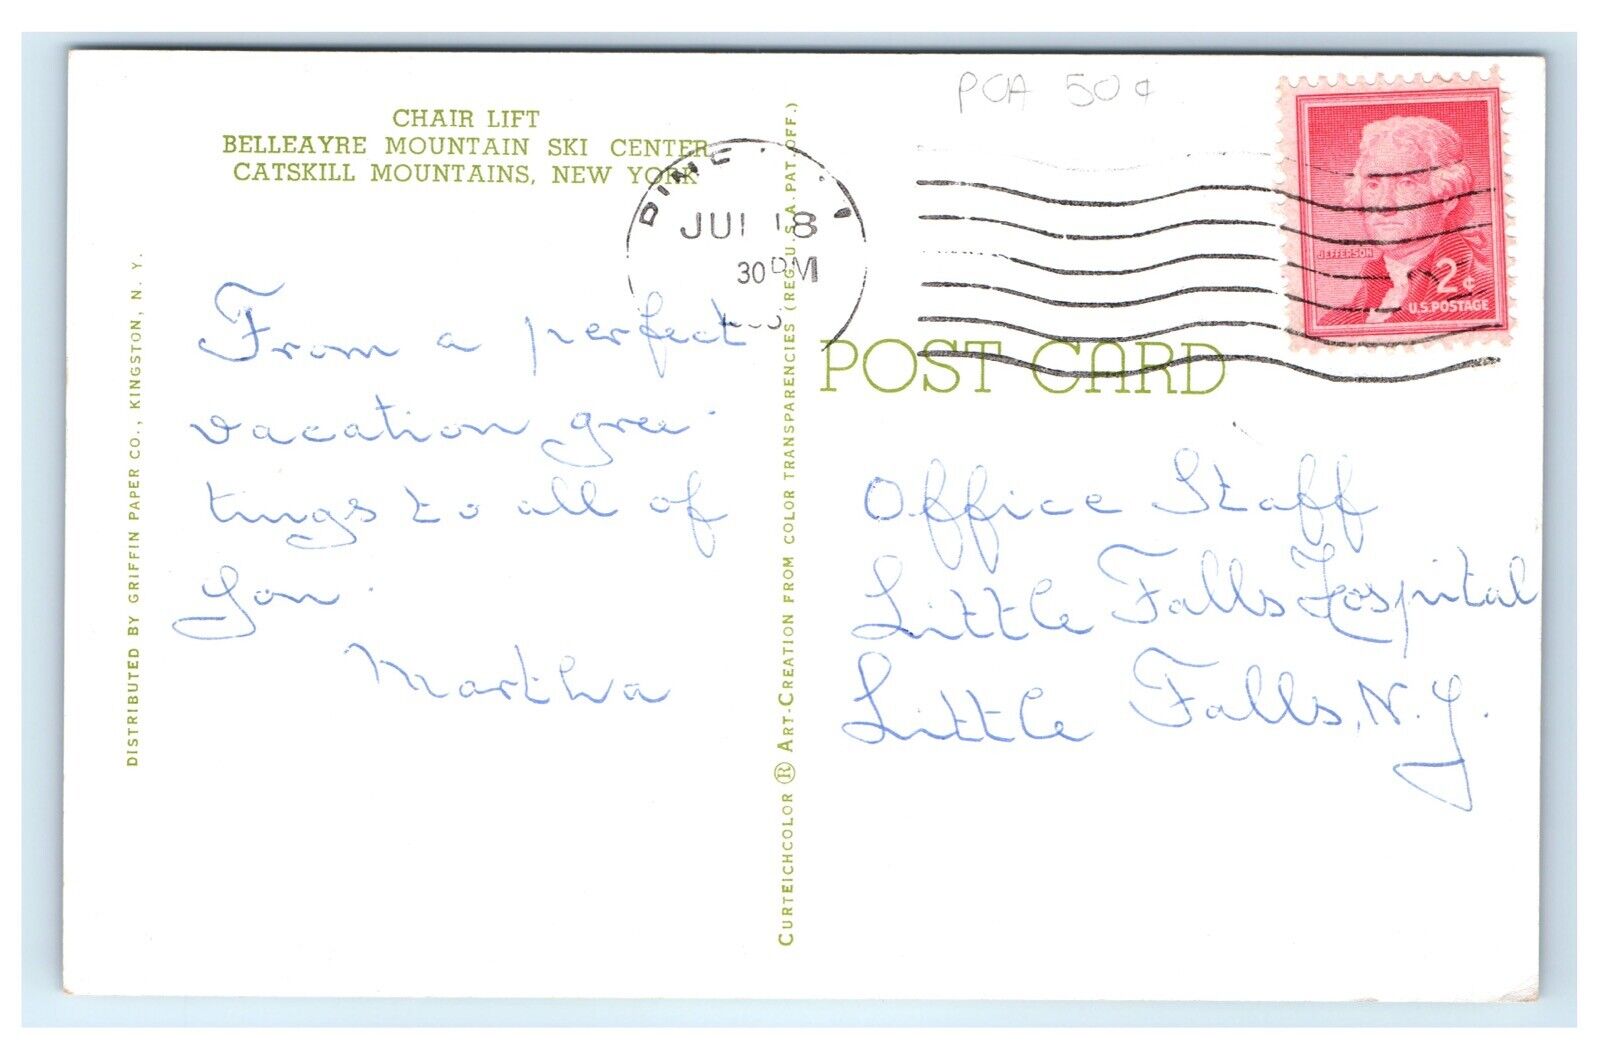 CHAIR LIFT
BELLEAYRE MOUNTAIN SKI CENTER
CATSKILL MOUNTAINS, NEW YORK
DISTRIBUTED BY GRIFFIN PAPER CO., KINGSTON, N. Y.
From a perfect
vacation gree-
tings to all of
you.
Martha
CURTEICHCOLOR ® ART-CREATION FROM COLOR TRANSPARENCIES (REG. U.S.A. PAT. OFF.)
POA 50¢
30 PM
JEFFERSON
2¢
U.S. POSTAGE
POST CARD
Office Staff
Little Falls Hospital
Little Falls, N.Y.